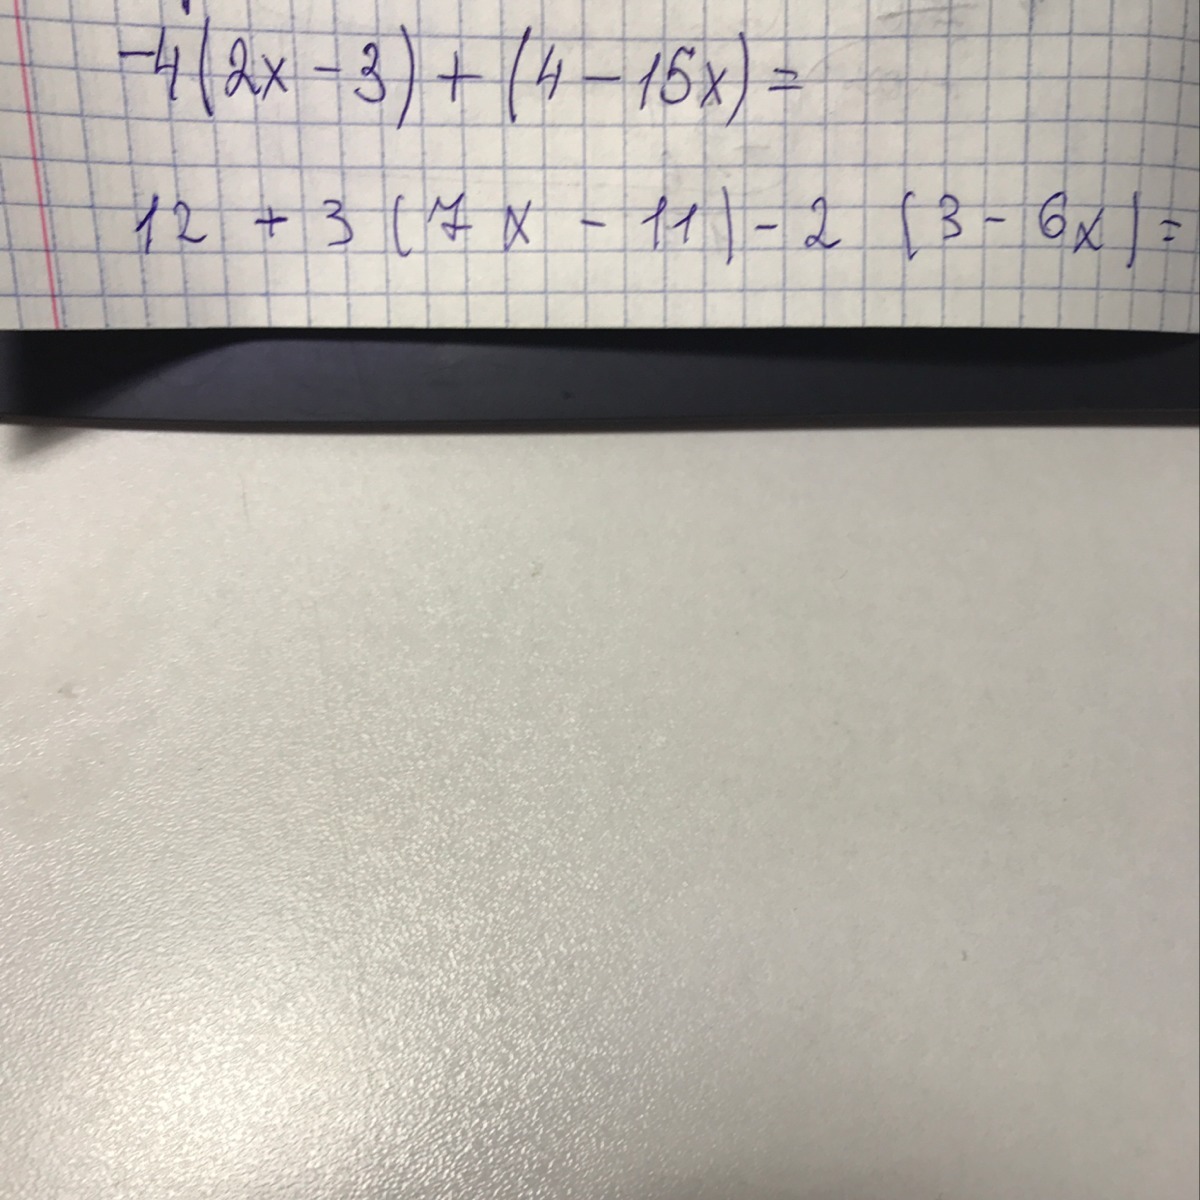 -4(2x-3)+(4-15x)=
12+3(7x-11)-2(3-6x)=